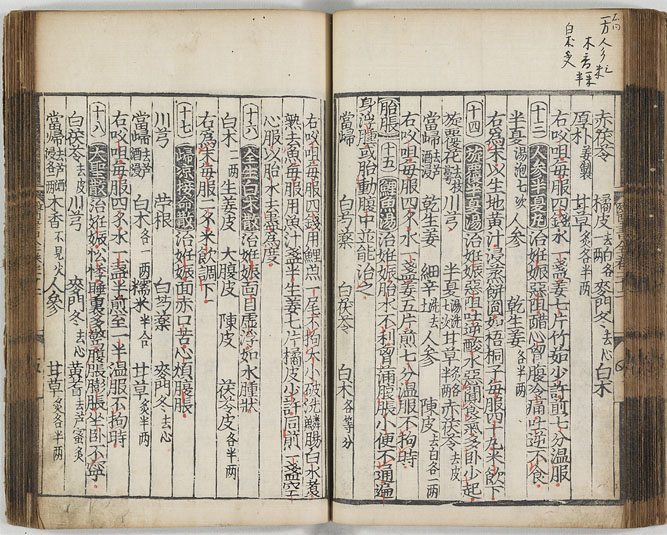 赤茯苓 橘皮去白各一两 麥門冬去心 白木
厚朴姜製 甘草炙各半两
右㕮咀每服四錢水一盞姜七片竹如少許煎七分温服
十三 人参半夏丸 治姙娠惡阻醋心胷腹冷痛吐逆不食
半夏湯泡七次 人参 乾生姜各半两
右為末以生地黄汁浸蒸餅圓如梧桐子每服四十九米飲下
十四 旋覆半夏湯 治姙娠惡阻吐逆酸水惡聞食氣多卧少起
旋覆花去枝 川芎 半夏湯洗七次 甘草炙各半两 赤茯苓去皮
當歸去芦酒浸 乾生姜 細辛洗去 人参 陳皮去白各一两
右㕮咀每服四錢水一盞姜五片煎七分温服不拘時
胎脹 十五 鯉魚湯 治姙娠胎水不利胷滿腹脹小便不通遍
身浮腫或胎動腹中並能治之
當歸 白芍藥 白茯苓 白木各等分
右㕮咀每服四錢用鯉魚一尾不拘大小破洗鱗腸白水煮
熟去魚每服用魚汁一盞半生姜七片橘皮少許同煎一盞空
心服以胎水去盡為度
十六 全生白术散 治姙娠面目虛浮如水腫狀
白木一两 生姜皮 大腹皮 陳皮 茯苓皮各半两
右為末每服二錢米飲調下
十七 歸凉䘐命散 治姙娠面赤口苦心煩腹脹
川芎 苧根 白芍藥 麥門冬去心
當歸去芦酒浸 白木各一两 糯米半合 甘草炙半两
右㕮咀每服四錢水一盞半煎至一半温服不拘時
十八 大聖散 治姙娠忪悸睡裏多驚腹脹膨脹坐卧不寧
白茯苓去皮 川芎 麥門冬去心 黄蓍去芦蜜炙
當歸去芦酒浸各一两 木香不見火 人参 甘草炙各半两